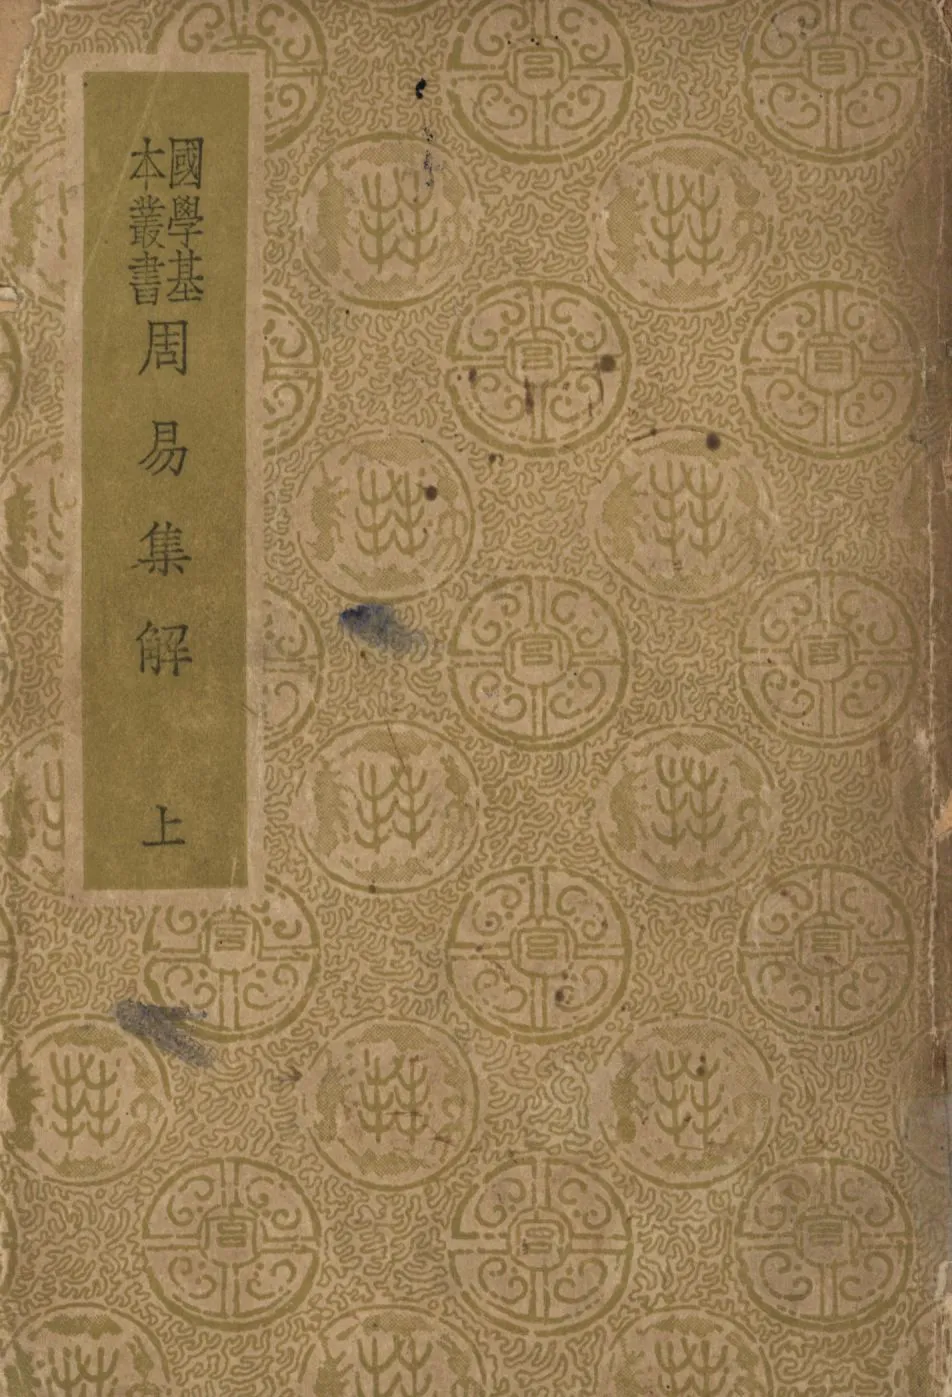 國學基
本叢書
周易集解
上